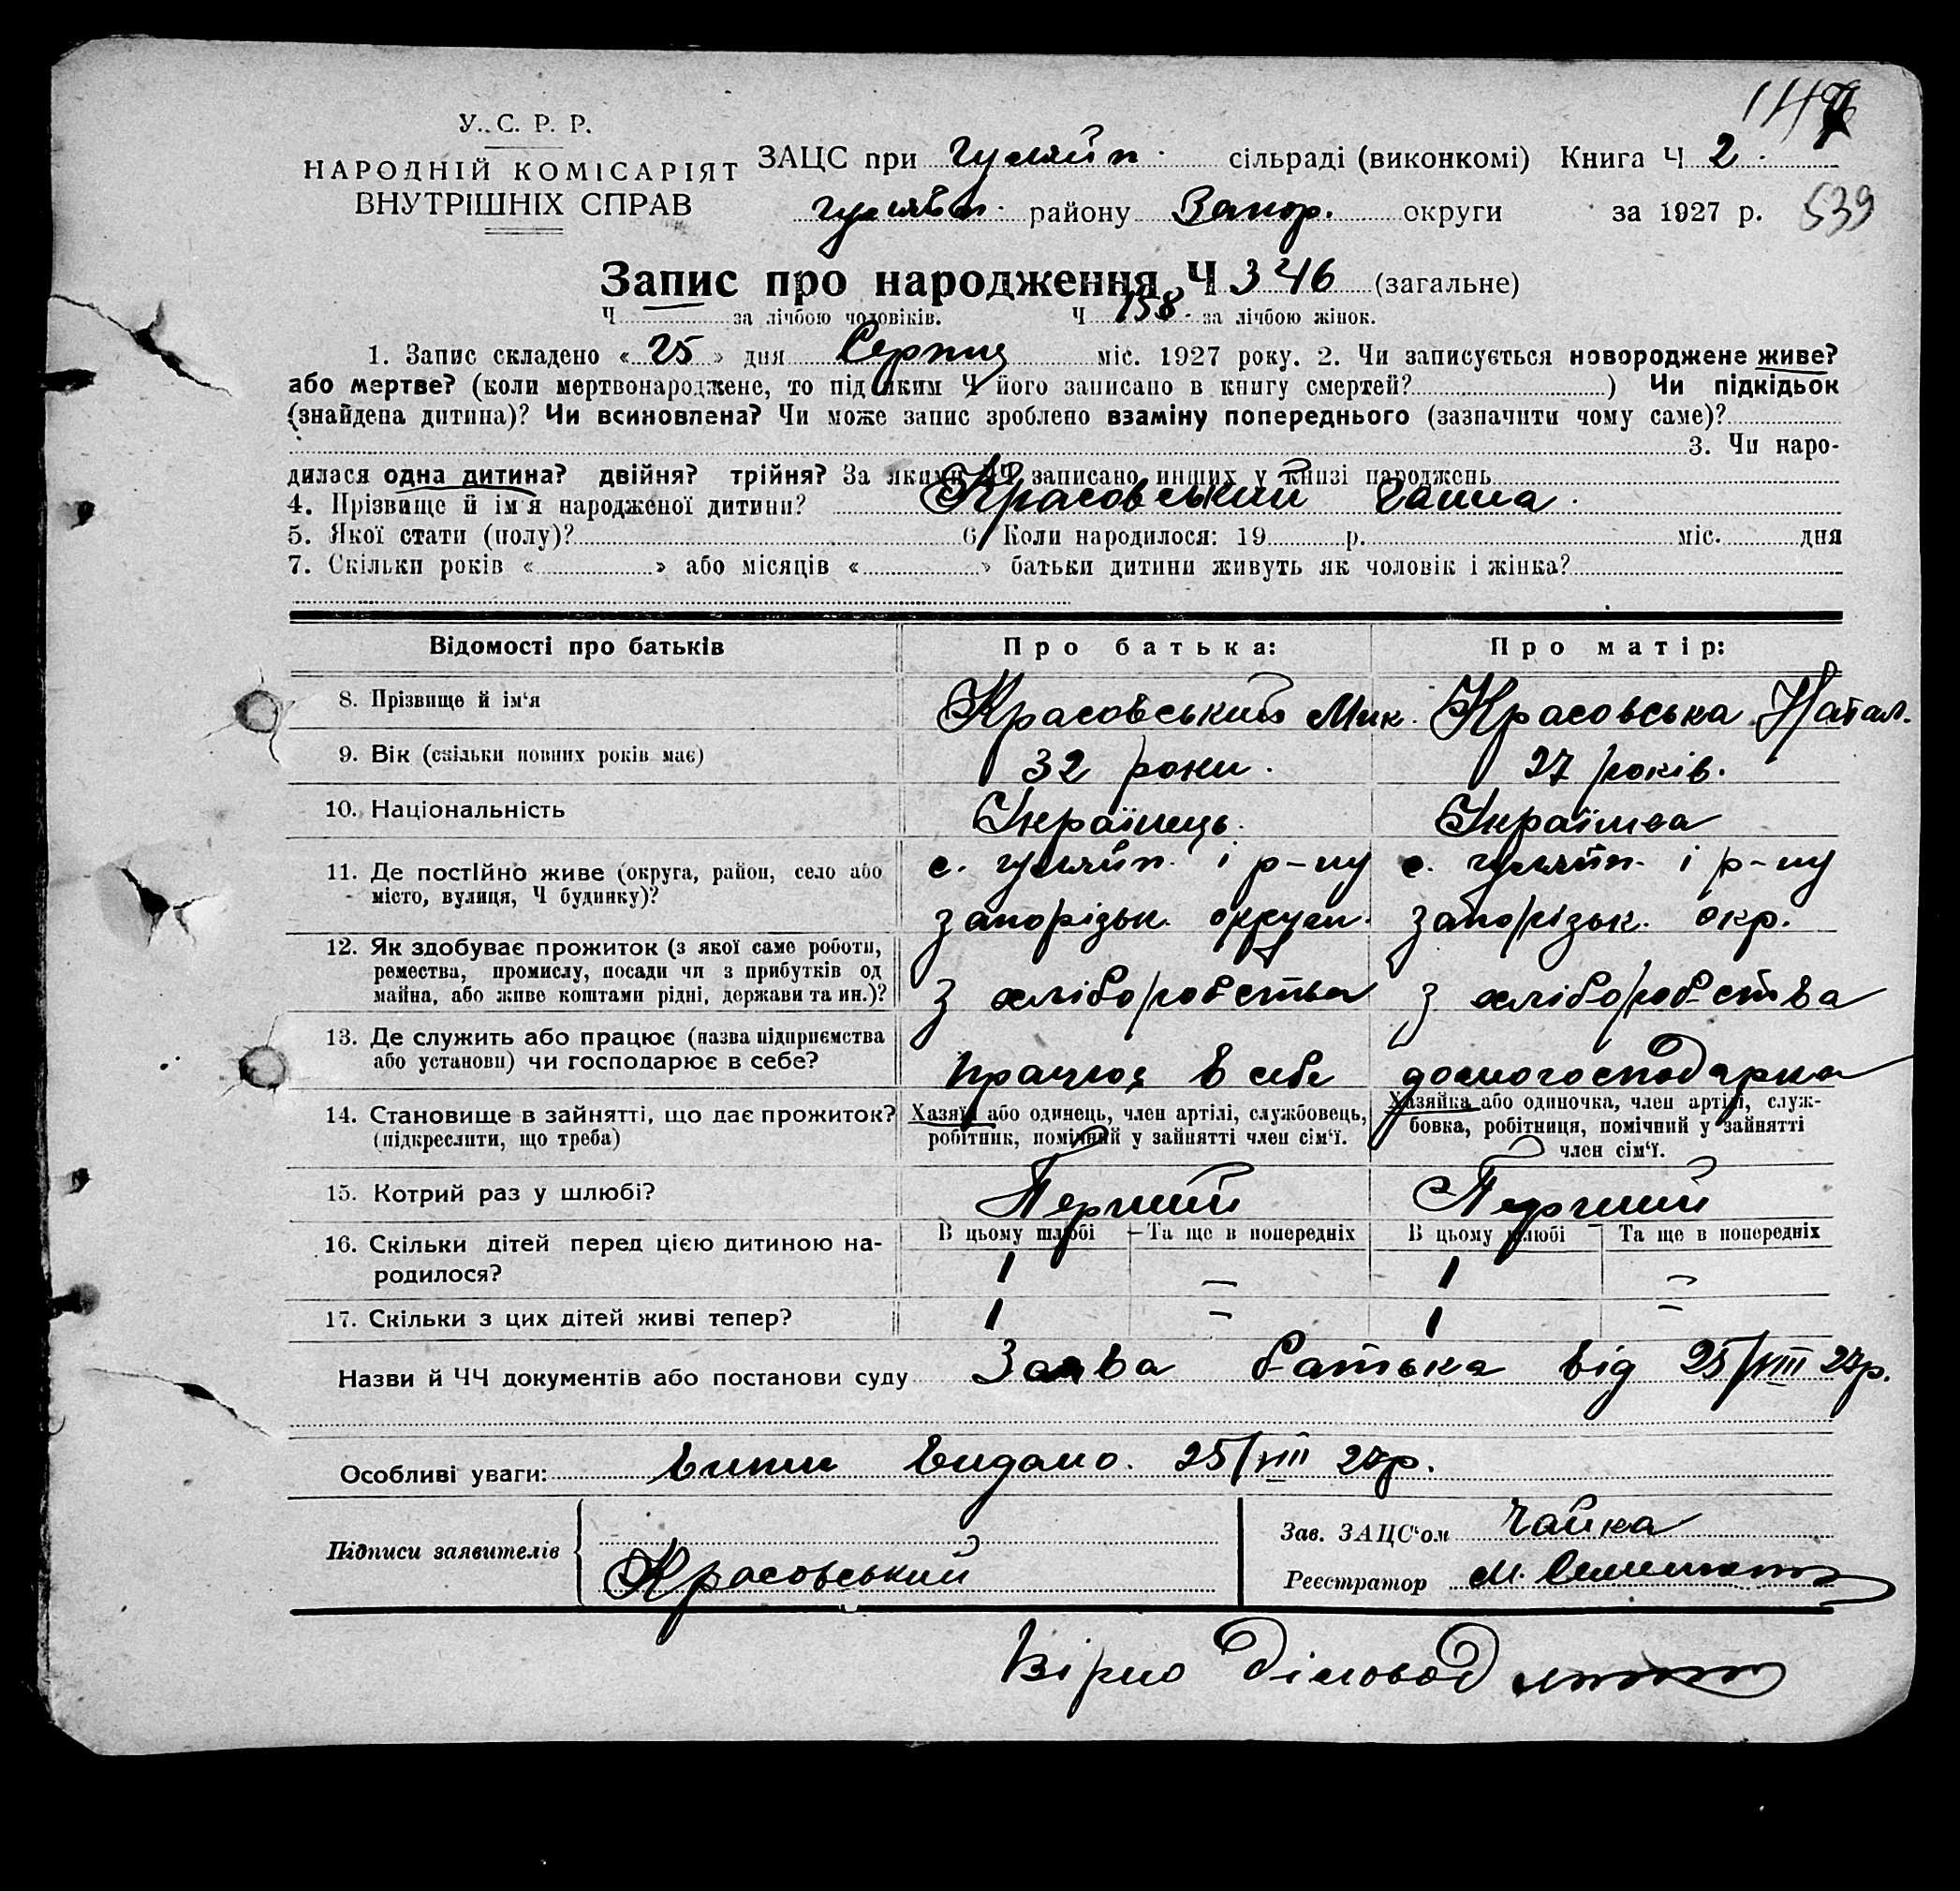 У. С. Р. Р.
НАРОДНІЙ КОМІСАРІЯТ
ВНУТРІШНІХ СПРАВ
ЗАЦС при Гуляйп. сільраді (виконкомі) Книга Ч 2.
Гуляйп. району Запор. округи за 1927 р. 539
Запис про народження Ч 346 (загальне)
Ч за лічбою чоловіків. Ч 158. за лічбою жінок.
1. Запис складено « 25 » дня Серпня міс. 1927 року. 2. Чи записується новороджене живе?
або мертве? (коли мертвонароджене, то під яким Ч його записано в книгу смертей? ) Чи підкідьок
(знайдена дитина)? Чи всиновлена? Чи може запис зроблено взаміну попереднього (зазначити чому саме)?
3. Чи наро-
дилася одна дитина? двійня? трійня? За якими ЧЧ записано инших у книзі народжень
4. Прізвище й ім'я народженої дитини? Красовський Ганна.
5. Якої стати (полу)? 6. Коли народилося: 19 р. міс. дня
7. Скільки років « » або місяців « » батьки дитини живуть як чоловік і жінка?
Відомості про батьків Про батька: Про матір:
8. Прізвище й ім'я Красовський Мик. Красовська Натал.
9. Вік (скільки повних років має) 32 роки. 27 років.
10. Національність Українець. Українка
11. Де постійно живе (округа, район, село або
місто, вулиця, Ч будинку)?
с. Гуляйп. і р-ну
Запорізьк. округи.
с. Гуляйп. і р-ну
Запорізьк. окр.
12. Як здобуває прожиток (з якої саме роботи,
ремества, промислу, посади чи з прибутків од
майна, або живе коштами рідні, держави та ин.)?
З хліборобства З хліборобства
13. Де служить або працює (назва підприємства
або установи) чи господарює в себе?
Працює в себе домогосподарка
14. Становище в зайнятті, що дає прожиток?
(підкреслити, що треба)
Хазяїн або одинець, член артілі, службовець,
робітник, помічний у зайнятті член сім'ї.
Хазяйка або одиночка, член артілі, служ-
бовка, робітниця, помічний у зайнятті
член сім'ї.
15. Котрий раз у шлюбі? Перший Перший
16. Скільки дітей перед цією дитиною на-
родилося?
В цьому шлюбі Та ще в попередніх В цьому шлюбі Та ще в попередніх
1 – 1 –
17. Скільки з цих дітей живі тепер? 1 – 1 –
Назви й ЧЧ документів або постанови суду Заява батька від 25/VIII 27р.
Особливі уваги: Випис видано. 25/VIII 27р.
Підписи заявителів
Красовський
Зав. ЗАЦС'ом Чайка
Реєстратор М.
Вірно Діловод